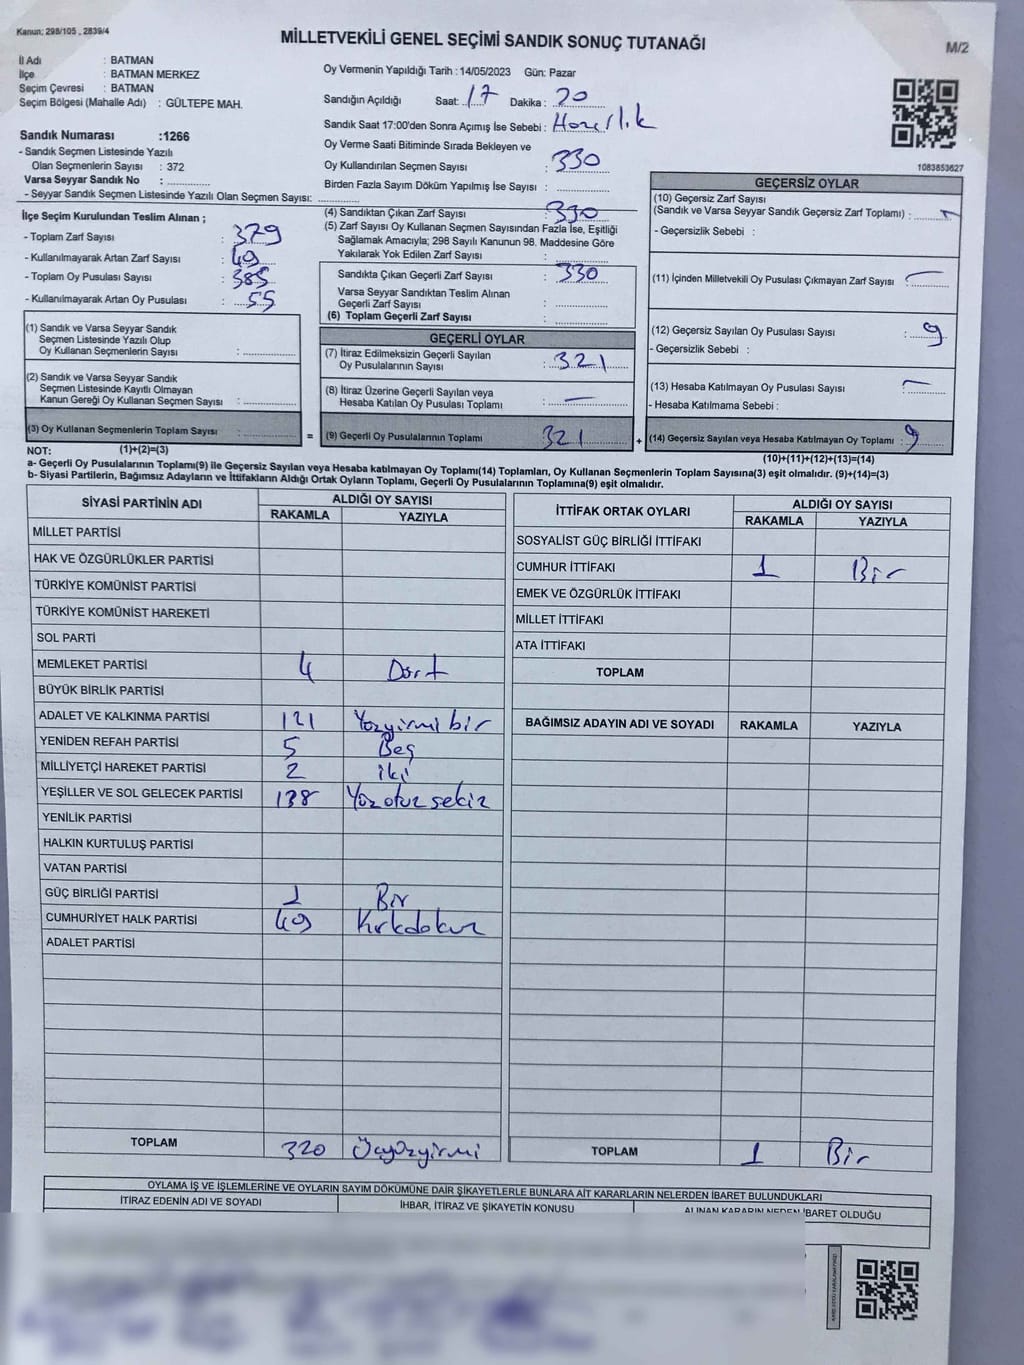 Kanun: 298/105 , 2839/4
MİLLETVEKİLİ GENEL SEÇİMİ SANDIK SONUÇ TUTANAĞI
M/2
İl Adı : BATMAN
İlçe : BATMAN MERKEZ
Seçim Çevresi : BATMAN
Seçim Bölgesi (Mahalle Adı) : GÜLTEPE MAH.
Sandık Numarası :1266
- Sandık Seçmen Listesinde Yazılı
Olan Seçmenlerin Sayısı : 372
Varsa Seyyar Sandık No :
- Seyyar Sandık Seçmen Listesinde Yazılı Olan Seçmen Sayısı:
Oy Vermenin Yapıldığı Tarih : 14/05/2023 Gün: Pazar
Sandığın Açıldığı Saat: 17 Dakika : 20
Sandık Saat 17:00'den Sonra Açımış İse Sebebi : Hazırlık
Oy Verme Saati Bitiminde Sırada Bekleyen ve
Oy Kullandırılan Seçmen Sayısı : 330
Birden Fazla Sayım Döküm Yapılmış İse Sayısı :
1083853627
İlçe Seçim Kurulundan Teslim Alınan ;
- Toplam Zarf Sayısı : 379
- Kullanılmayarak Artan Zarf Sayısı : 49
- Toplam Oy Pusulası Sayısı : 385
- Kullanılmayarak Artan Oy Pusulası : 55
(1) Sandık ve Varsa Seyyar Sandık
Seçmen Listesinde Yazılı Olup
Oy Kullanan Seçmenlerin Sayısı :
(2) Sandık ve Varsa Seyyar Sandık
Seçmen Listesinde Kayıtlı Olmayan
Kanun Gereği Oy Kullanan Seçmen Sayısı :
(3) Oy Kullanan Seçmenlerin Toplam Sayısı :
(4) Sandıktan Çıkan Zarf Sayısı : 330
(5) Zarf Sayısı Oy Kullanan Seçmen Sayısından Fazla İse, Eşitliği
Sağlamak Amacıyla; 298 Sayılı Kanunun 98. Maddesine Göre
Yakılarak Yok Edilen Zarf Sayısı :
Sandıkta Çıkan Geçerli Zarf Sayısı : 330
Varsa Seyyar Sandıktan Teslim Alınan
Geçerli Zarf Sayısı :
(6) Toplam Geçerli Zarf Sayısı :
GEÇERLİ OYLAR
(7) İtiraz Edilmeksizin Geçerli Sayılan
Oy Pusulalarının Sayısı : 321
(8) İtiraz Üzerine Geçerli Sayılan veya
Hesaba Katılan Oy Pusulası Toplamı : —
= (9) Geçerli Oy Pusulalarının Toplamı 321 +
GEÇERSİZ OYLAR
(10) Geçersiz Zarf Sayısı
(Sandık ve Varsa Seyyar Sandık Geçersiz Zarf Toplamı) :
- Geçersizlik Sebebi :
(11) İçinden Milletvekili Oy Pusulası Çıkmayan Zarf Sayısı : —
(12) Geçersiz Sayılan Oy Pusulası Sayısı : 9
- Geçersizlik Sebebi :
(13) Hesaba Katılmayan Oy Pusulası Sayısı : —
- Hesaba Katılmama Sebebi :
(14) Geçersiz Sayılan veya Hesaba Katılmayan Oy Toplamı : 9
NOT: (1)+(2)=(3)
(10)+(11)+(12)+(13)=(14)
a- Geçerli Oy Pusulaları Toplamı(9) ile Geçersiz Sayılan veya Hesaba katılmayan Oy Toplamı(14) Toplamları, Oy Kullanan Seçmenlerin Toplam Sayısına(3) eşit olmalıdır. (9)+(14)=(3)
b- Siyasi Partilerin, Bağımsız Adayların ve İttifakların Aldığı Ortak Oyların Toplamı, Geçerli Oy Pusulalarının Toplamına(9) eşit olmalıdır.
SİYASİ PARTİNİN ADI ALDIĞI OY SAYISI
RAKAMLA YAZIYLA
MİLLET PARTİSİ
HAK VE ÖZGÜRLÜKLER PARTİSİ
TÜRKİYE KOMÜNİST PARTİSİ
TÜRKİYE KOMÜNİST HAREKETİ
SOL PARTİ
MEMLEKET PARTİSİ 4 Dört
BÜYÜK BİRLİK PARTİSİ
ADALET VE KALKINMA PARTİSİ 121 Yüzyirmi bir
YENİDEN REFAH PARTİSİ 5 Beş
MİLLİYETÇİ HAREKET PARTİSİ 2 iki
YEŞİLLER VE SOL GELECEK PARTİSİ 138 Yüz otuz sekiz
YENİLİK PARTİSİ
HALKIN KURTULUŞ PARTİSİ
VATAN PARTİSİ
GÜÇ BİRLİĞİ PARTİSİ 1 Bir
CUMHURİYET HALK PARTİSİ 49 Kırkdokuz
ADALET PARTİSİ
TOPLAM 320 Üçyüzyirmi
İTTİFAK ORTAK OYLARI ALDIĞI OY SAYISI
RAKAMLA YAZIYLA
SOSYALİST GÜÇ BİRLİĞİ İTTİFAKI
CUMHUR İTTİFAKI 1 Bir
EMEK VE ÖZGÜRLÜK İTTİFAKI
MİLLET İTTİFAKI
ATA İTTİFAKI
TOPLAM
BAĞIMSIZ ADAYIN ADI VE SOYADI RAKAMLA YAZIYLA
TOPLAM 1 Bir
OYLAMA İŞ VE İŞLEMLERİNE VE OYLARIN SAYIM DÖKÜMÜNE DAİR ŞİKAYETLERLE BUNLARA AİT KARARLARIN NELERDEN İBARET BULUNDUKLARI
İTİRAZ EDENİN ADI VE SOYADI İHBAR, İTİRAZ VE ŞİKAYETİN KONUSU ALINAN KARARIN NEDEN İBARET OLDUĞU